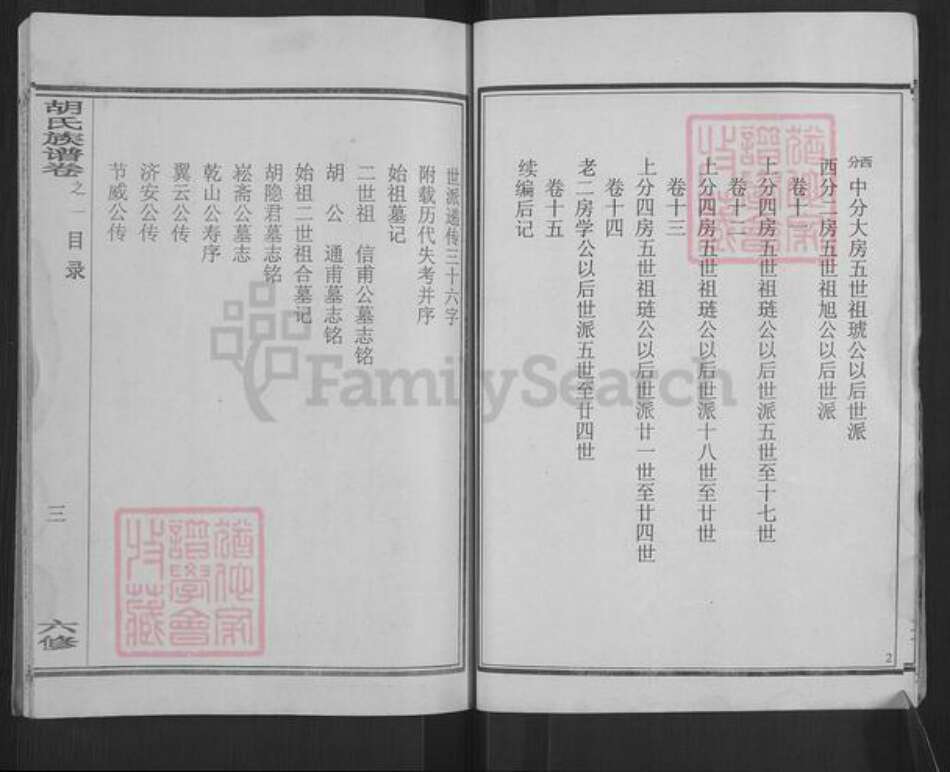 西分
中分大房五世祖琥公以后世派
西分二房五世祖旭公以后世派
卷十一
上分四房五世祖琏公以后世派五世至十七世
卷十二
上分四房五世祖琏公以后世派十八世至廿世
卷十三
上分四房五世祖琏公以后世派廿一世至廿四世
卷十四
老二房学公以后世派五世至廿四世
卷十五
续编后记
2
世派递传三十六字
附载历代失考并序
始祖墓记
二世祖 信甫公墓志铭
胡 公 通甫墓志铭
始祖二世祖合墓记
胡隐君墓志铭
崧斋公墓志
乾山公寿序
翼云公传
济安公传
节威公传
胡氏族谱卷之一 目录
三
六修
FamilySearch